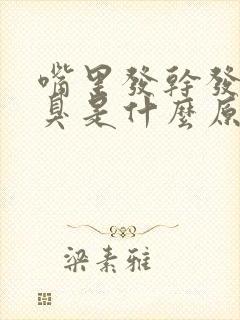 嘴里發幹發
臭是什麼原
梁素雅